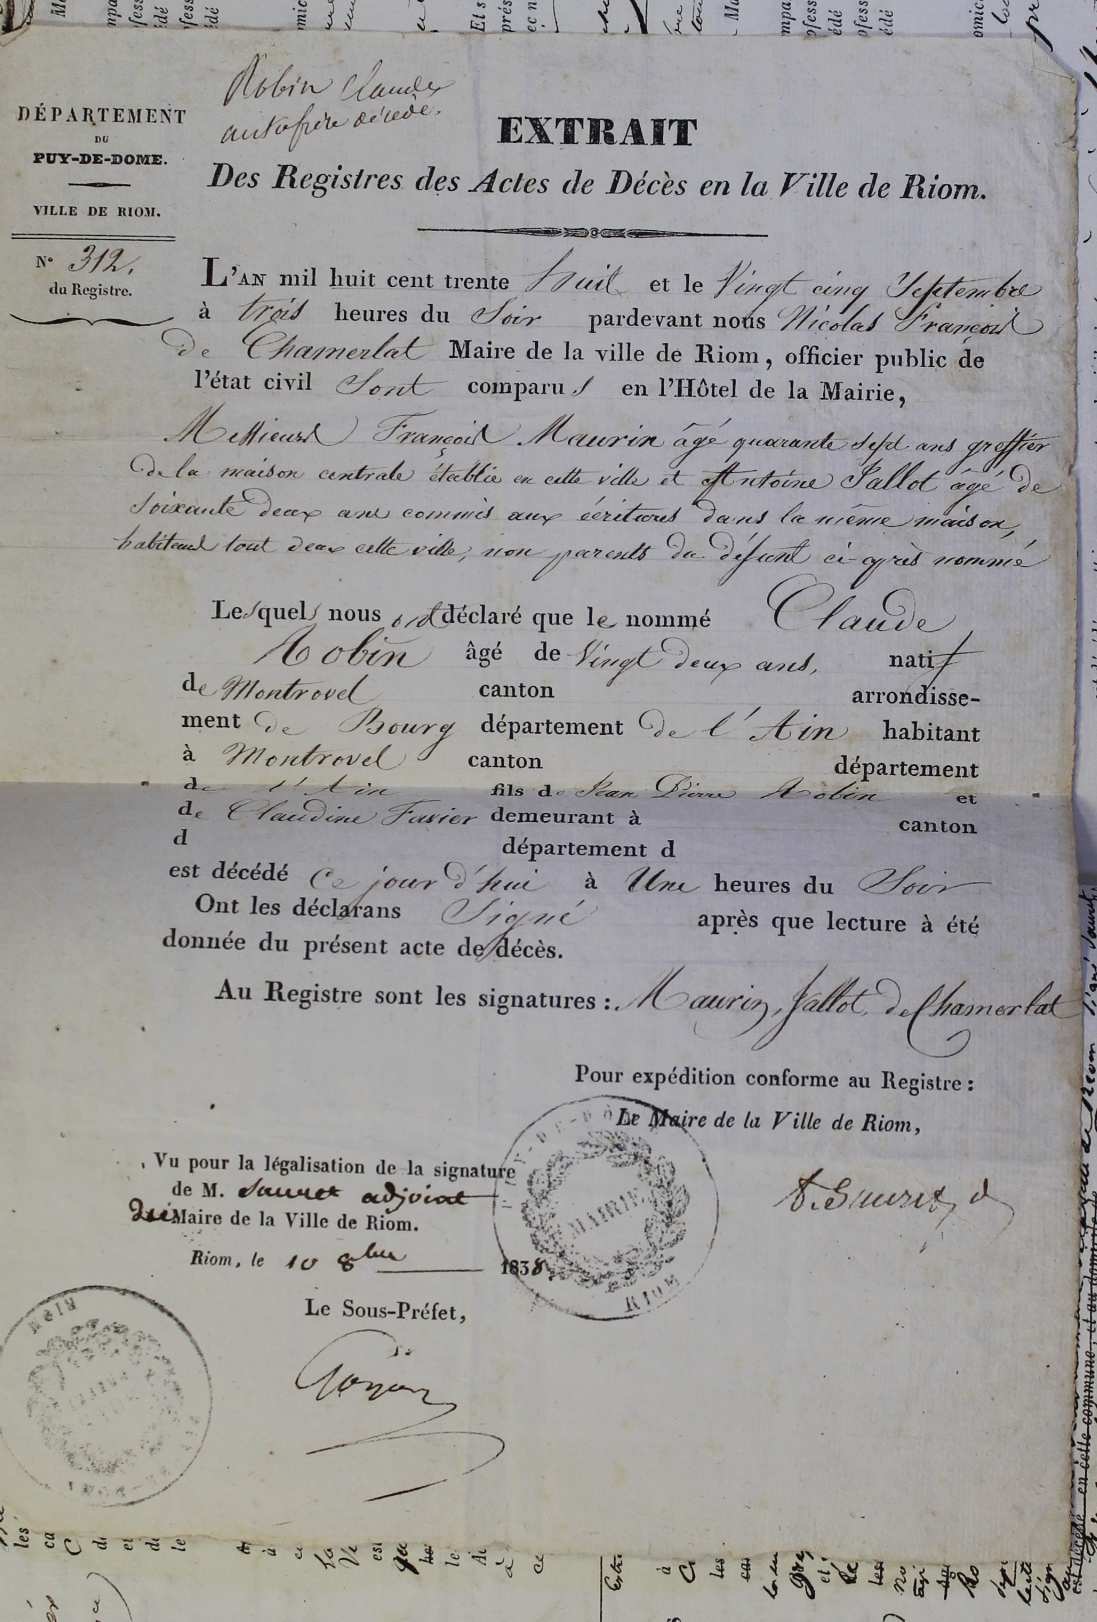 Robin Claude
autofrère décédé.
DÉPARTEMENT
DU
PUY-DE-DOME.
VILLE DE RIOM.
N° 312.
du Registre.
EXTRAIT
Des Registres des Actes de Décès en la Ville de Riom.
L'AN mil huit cent trente huit et le Vingt cinq Septembre
à trois heures du Soir pardevant nous Nicolas François
de Chamerlat Maire de la ville de Riom, officier public de
l'état civil Sont comparus en l'Hôtel de la Mairie,
Messieurs François Maurin âgé quarante sept ans greffier
de la maison centrale établie en cette ville et Antoine Jallot âgé de
soixante deux ans commis aux écritures dans la même maison,
habitants tout deux cette ville, non parents du défunt ci-après nommé
Lesquels nous ont déclaré que le nommé Claude
Robin âgé de Vingt deux ans, natif
de Montrovel canton arrondisse-
ment de Bourg département de l'Ain habitant
à Montrovel canton département
de l'Ain fils de Jean Pierre Robin et
de Claudine Favier demeurant à canton
d département d
est décédé ce jour d'hui à Une heures du Soir
Ont les déclarans Signé après que lecture à été
donnée du présent acte de décès.
Au Registre sont les signatures: Maurin, Jallot, de Chamerlat
Pour expédition conforme au Registre:
Le Maire de la Ville de Riom,
Vu pour la légalisation de la signature
de M. Sauret adjoint
Maire de la Ville de Riom.
Riom, le 10 8bre 1838.
Le Sous-Préfet,
MAIRIE
RIOM